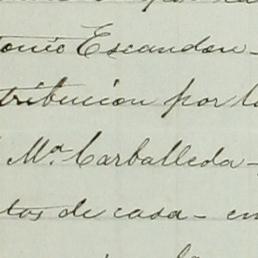 tonio Escandon-
tribucion por l
Mª Carballeda-
tos de casa- en